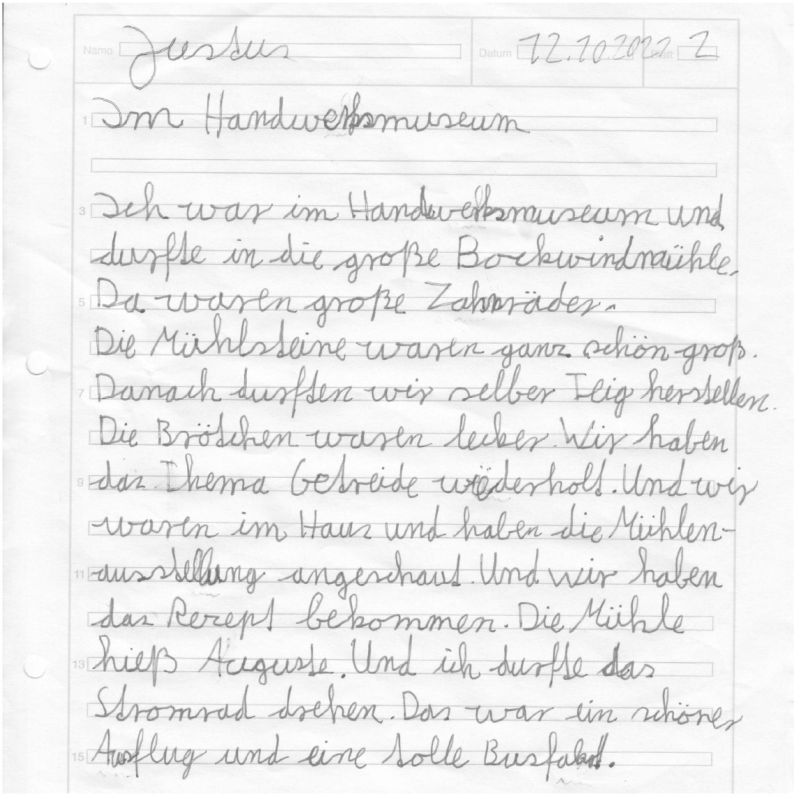 Name Justus Datum 12.10.2022 2
1 Im Handwerksmuseum
3 Ich war im Handwerksmuseum und
durfte in die große Bockwindmühle.
5 Da waren große Zahnräder.
Die Mühlsteine waren ganz schön groß.
7 Danach durften wir selber Teig herstellen.
Die Brötchen waren lecker. Wir haben
9 das Thema Getreide wiederholt. Und wir
waren im Haus und haben die Mühlen-
11 ausstellung angeschaut. Und wir haben
das Rezept bekommen. Die Mühle
13 hieß Auguste. Und ich durfte das
Stromrad drehen. Das war ein schöner
15 Ausflug und eine tolle Busfahrt.